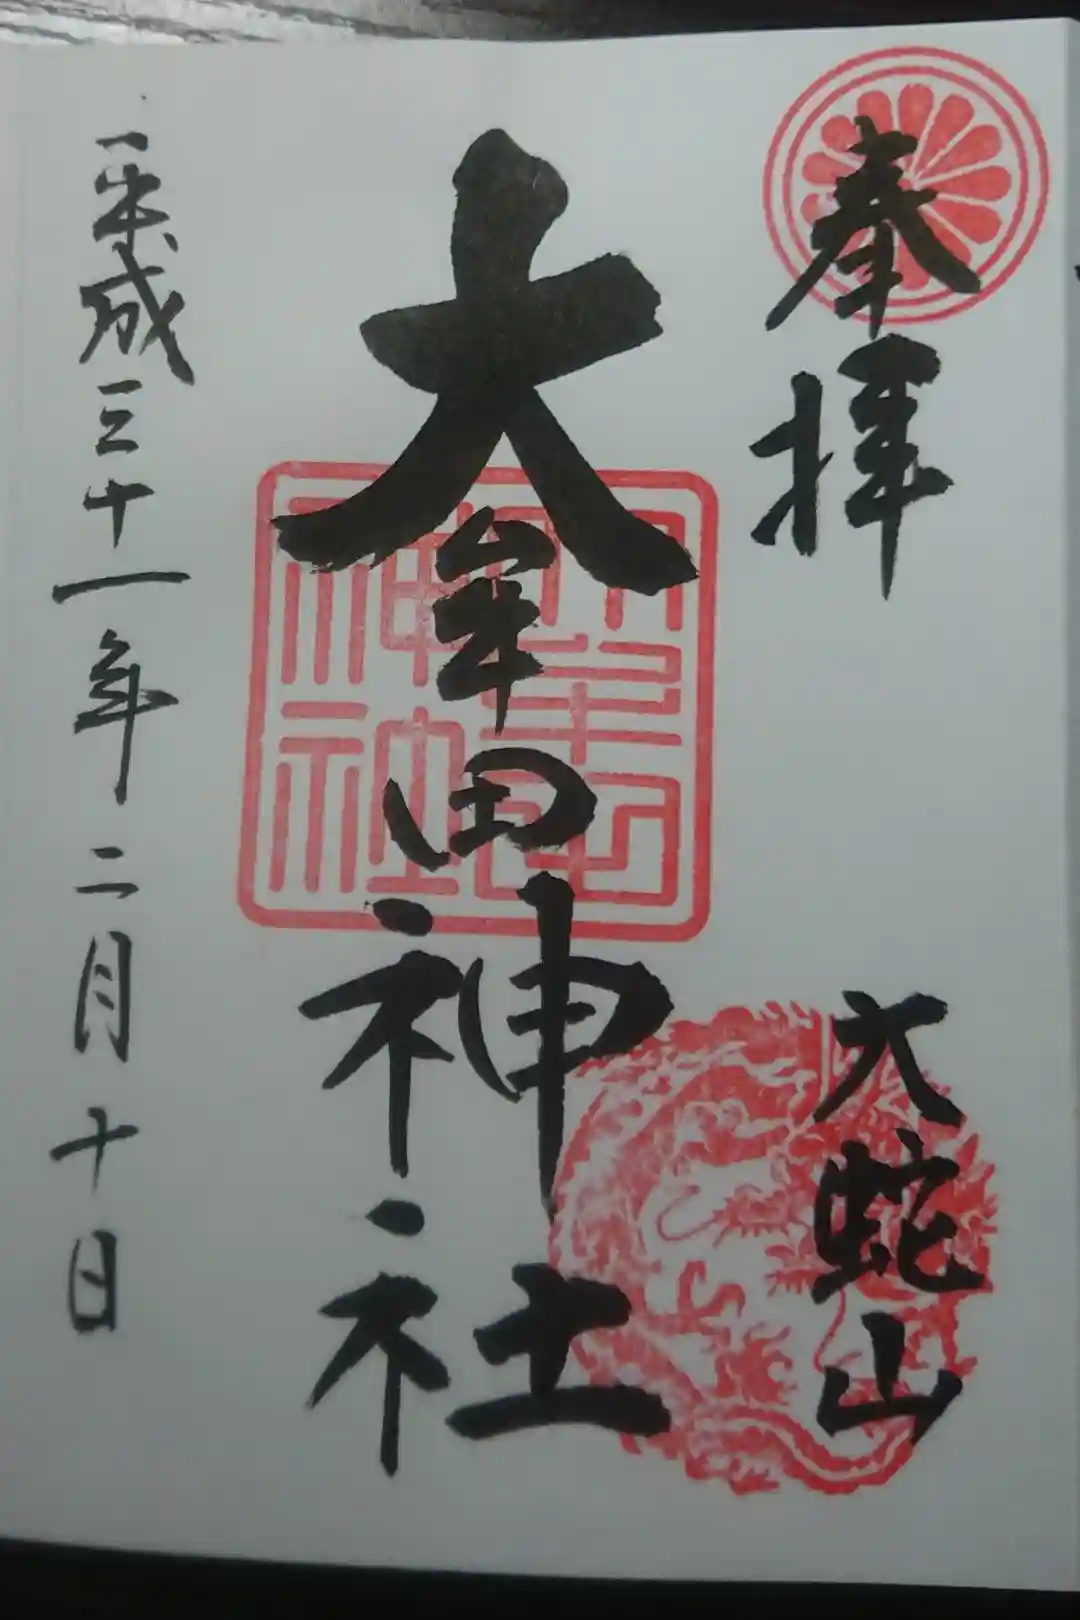 奉拝
大蛇山
大牟田神社
平成三十一年二月十日